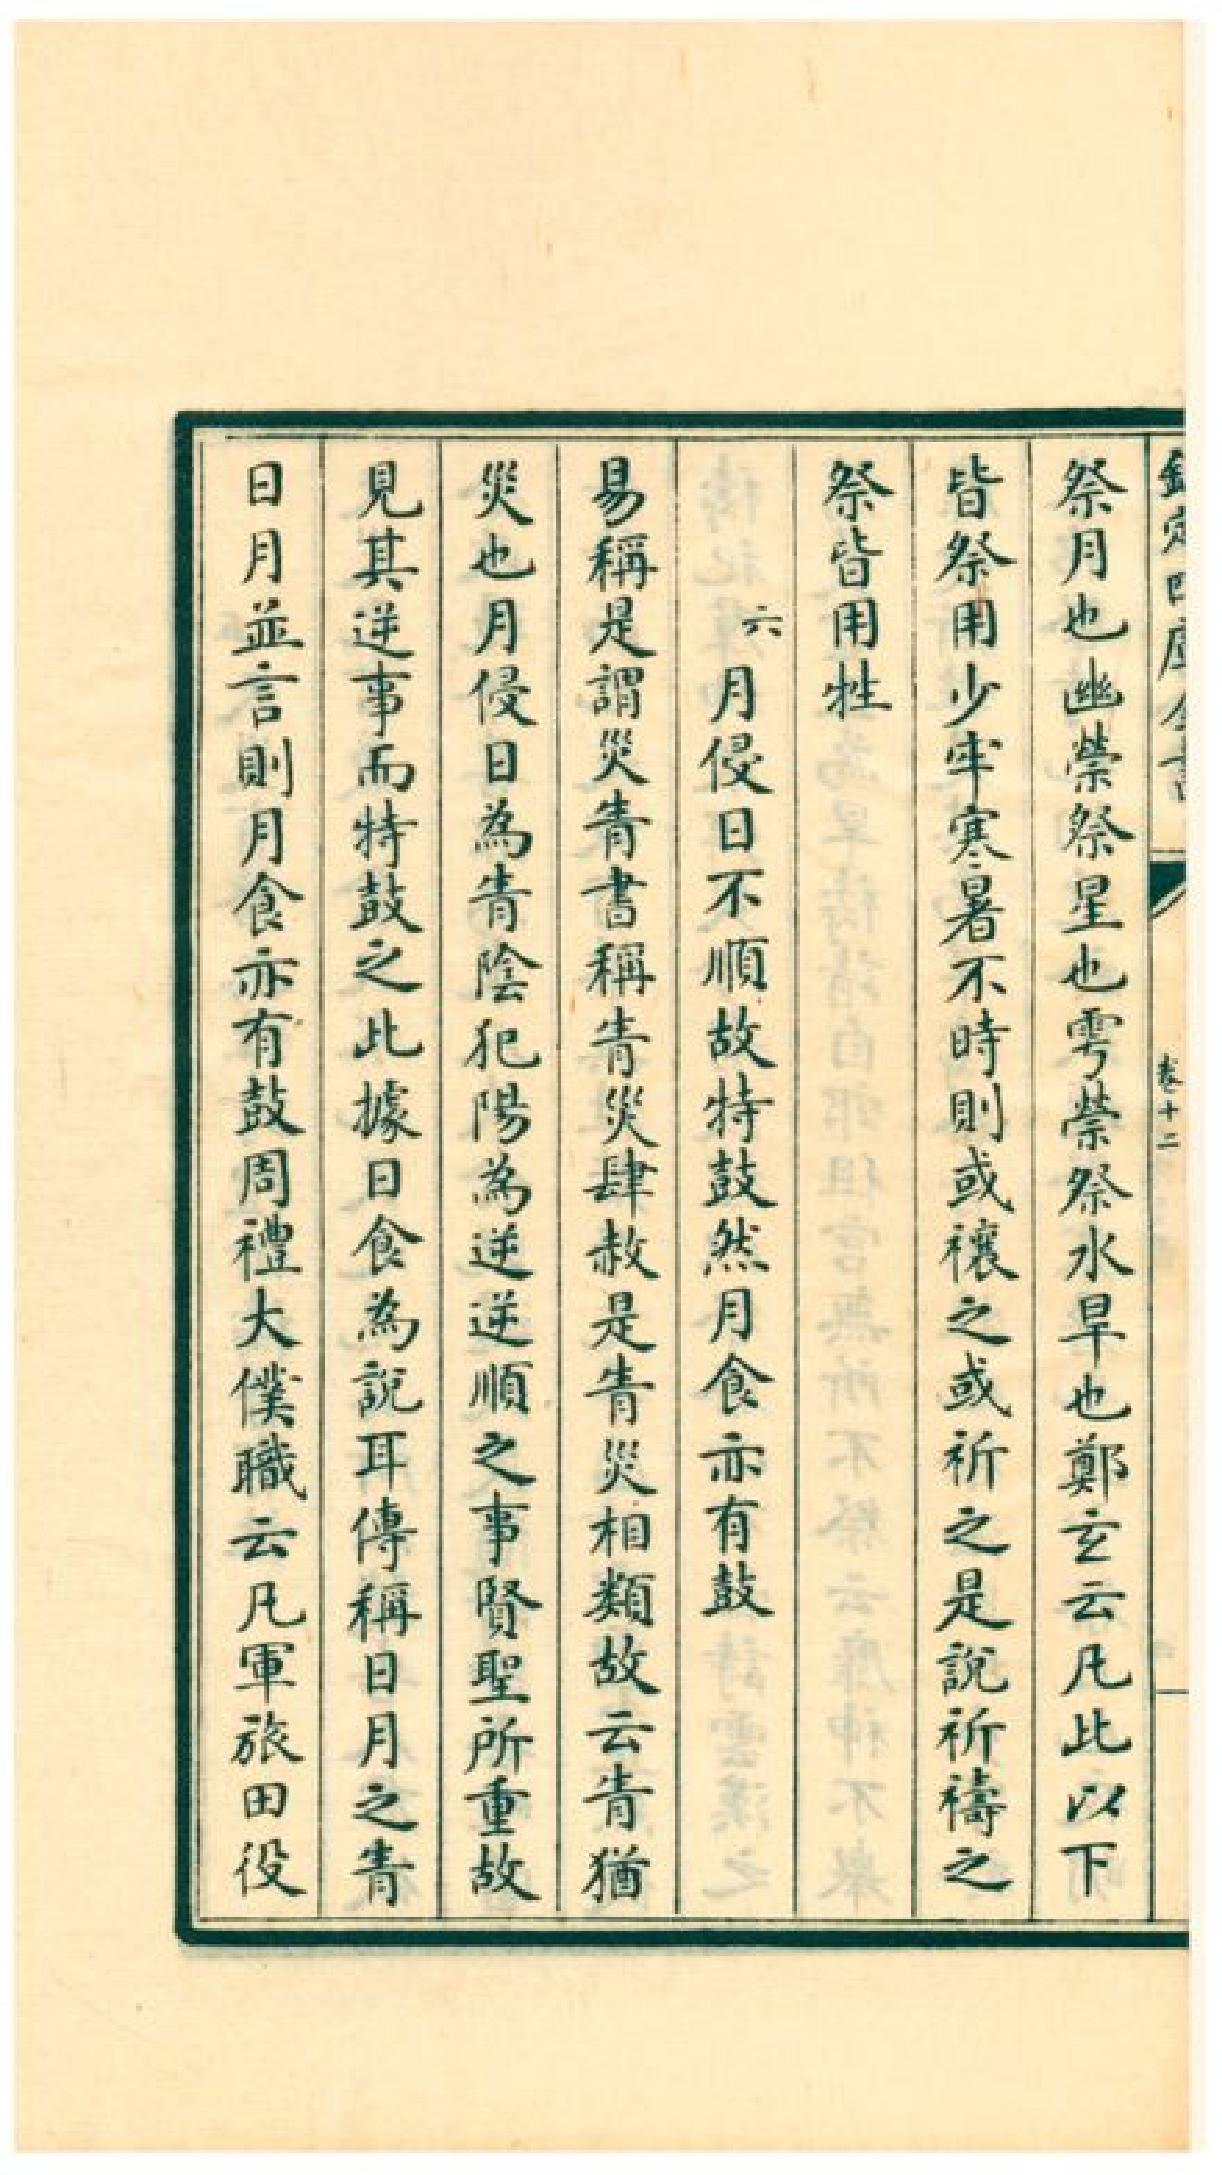 欽定四庫全書 卷十二
祭月也幽禜祭星也雩禜祭水旱也鄭玄云凡此以下
皆祭用少牢寒暑不時則或禳之或祈之是說祈禱之
祭皆用牲
六月侵日不順故特鼓然月食亦有鼓
易稱是謂災眚書稱眚災肆赦是眚災相類故云眚猶
災也月侵日為眚陰犯陽為逆逆順之事賢聖所重故
見其逆事而特鼓之此據日食為說耳傳稱日月之眚
日月並言則月食亦有鼓周禮大僕職云凡軍旅田役